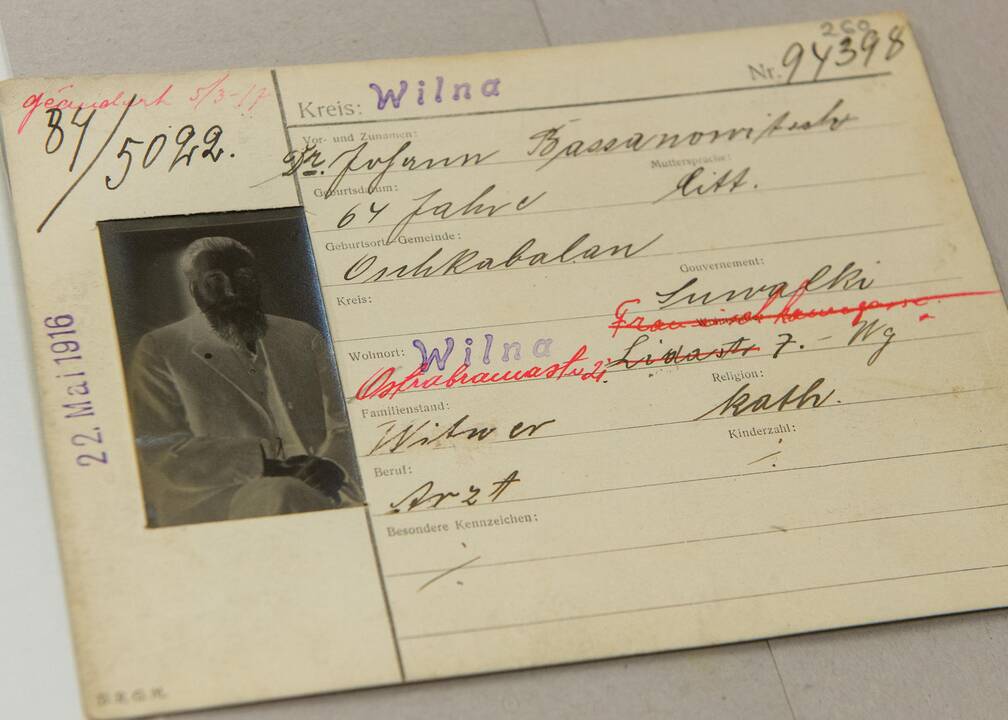 260
geändert 5/3-17
84/5022.
Kreis: Wilna
Nr. 94398
Vor- und Zunamen:
Dr. Johann Bassanowitsch
Geburtsdatum:
Muttersprache:
64 Jahre
Litt.
Geburtsort-Gemeinde:
Oschkabalan
Kreis:
Gouvernement:
Suwalki
Wohnort: Wilna
7. - Wg
Familienstand:
Religion:
Witwer
kath.
Kinderzahl:
Beruf:
Arzt
Besondere Kennzeichen:
22. Mai 1916